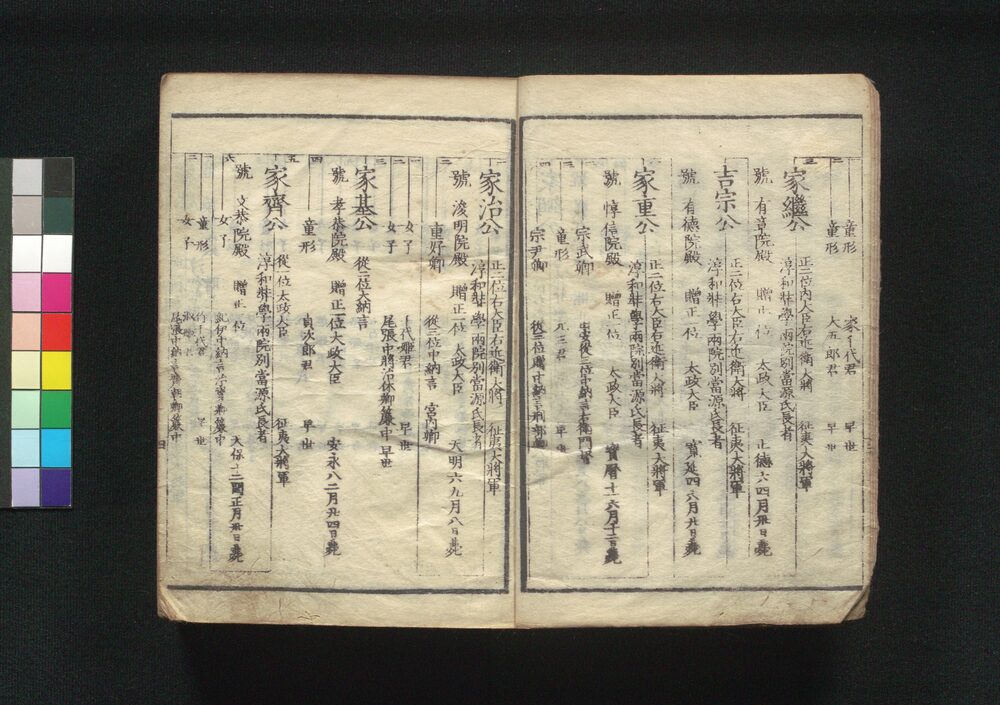 童形 家千代君 早世
童形 大五郎君 早世
家繼公 正二位内大臣右近衛大將 征夷大將軍
淳和奨學兩院別當源氏長者
號 有章院殿 贈正一位 太政大臣 正德六四月卅日薨
吉宗公 正二位右大臣右近衛大將 征夷大將軍
淳和奨學兩院別當源氏長者
號 有德院殿 贈正一位 太政大臣 寛延四六月廿日薨
家重公 正二位右大臣右近衛大將 征夷大將軍
淳和奨學兩院別當源氏長者
號 惇信院殿 贈正一位 太政大臣 寶暦十一六月十二日薨
宗武卿 從三位中納言右衛門督
童形 早世
宗尹卿 從三位 刑部卿
家治公 正二位右大臣右近衛大將 征夷大將軍
淳和奨學兩院別當源氏長者
號 浚明院殿 贈正一位 太政大臣 天明六九月八日薨
重好卿 從三位中納言 宮内卿
女子 千代姫君 早世
女子 尾張中將治休卿簾中 早世
家基公 從二位大納言
號 孝恭院殿 贈正一位大政大臣 安永八二月廿四日薨
童形 貞次郎君 早世
家齊公 從一位太政大臣 征夷大將軍
淳和奨學兩院別當源氏長者
號 文恭院殿 贈正一位 天保十二閏正月卅日薨
女子
童形 竹千代君 早世
女子
四